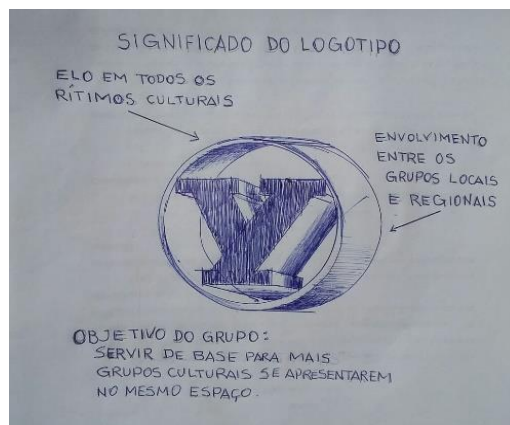 SIGNIFICADO DO LOGOTIPO
ELO EM TODOS OS
RÍTIMOS CULTURAIS
ENVOLVIMENTO
ENTRE OS
GRUPOS LOCAIS
E REGIONAIS
OBJETIVO DO GRUPO:
SERVIR DE BASE PARA MAIS
GRUPOS CULTURAIS SE APRESENTAREM
NO MESMO ESPAÇO.